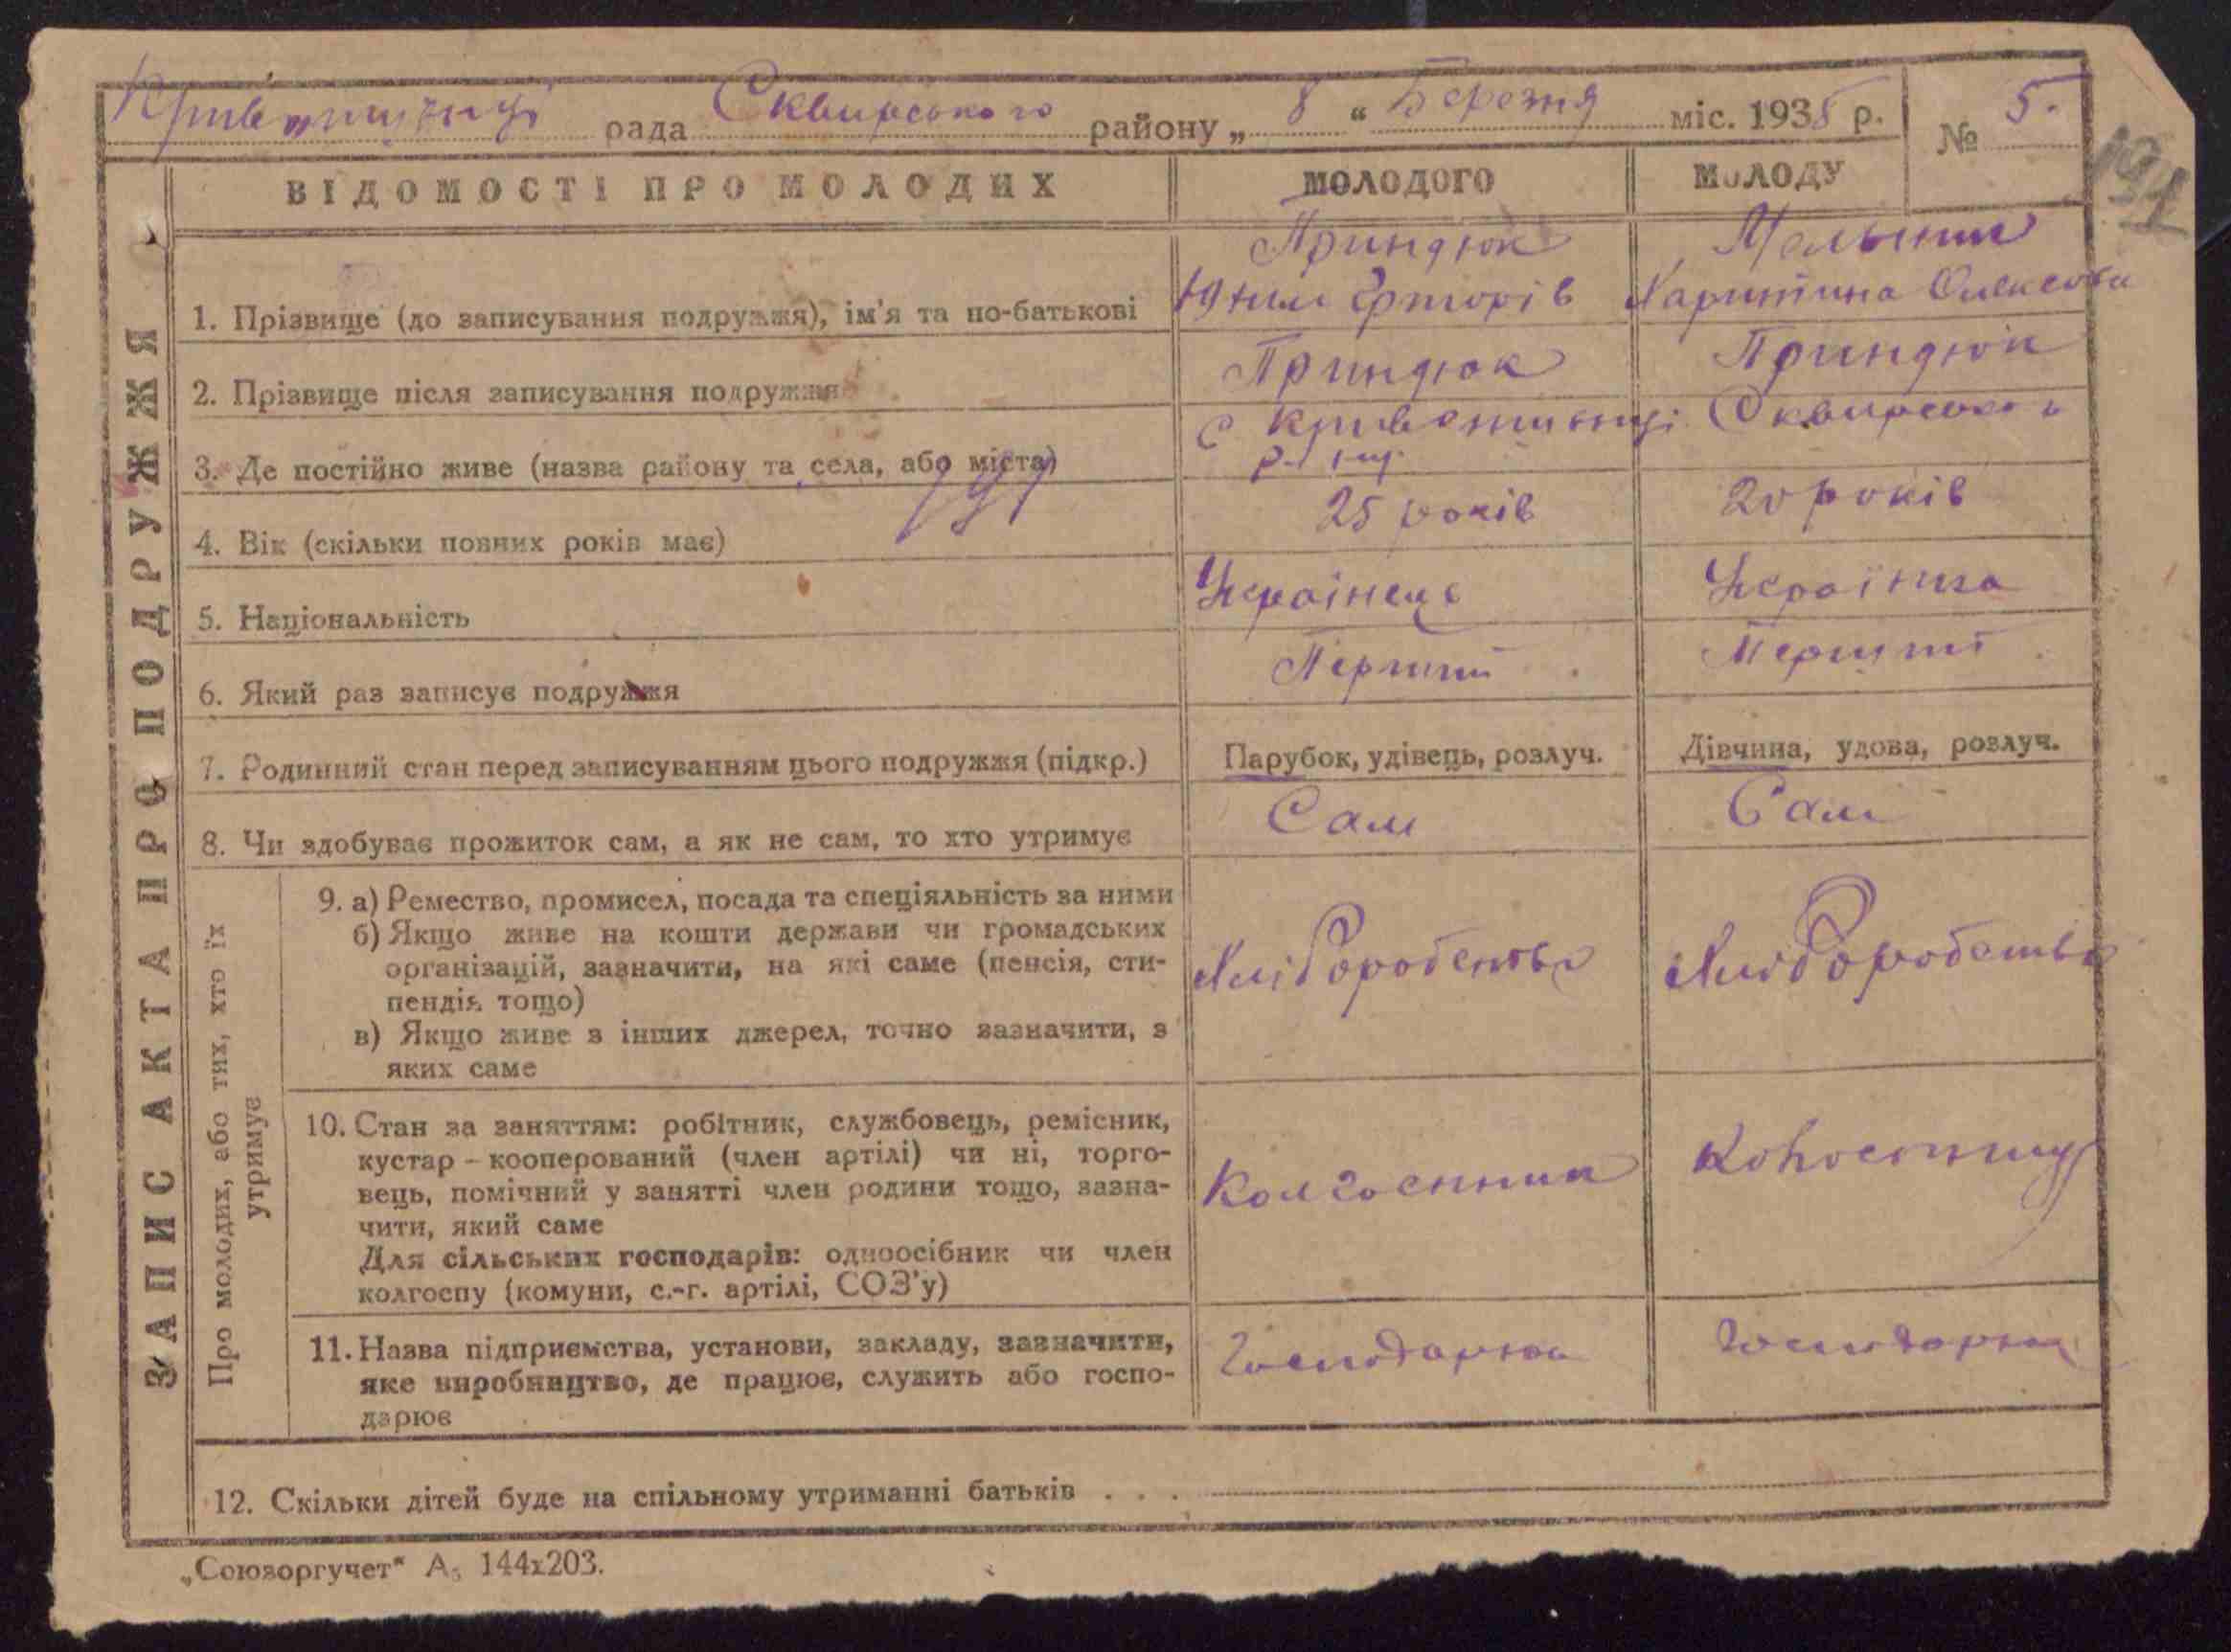 рада Сквирського району „ 8 “ Березня міс. 1938 р. № 5.
191
ЗАПИС АКТА ПРО ПОДРУЖЖЯ
ВІДОМОСТІ ПРО МОЛОДИХ МОЛОДОГО МОЛОДУ
Приндюк Мельник
1. Прізвище (до записування подружжя), ім'я та по-батькові Харитина Олексовa
2. Прізвище після записування подружжя Приндюк Приндюк
3. Де постійно живе (назва району та села, або міста) с Кривошиинці Сквирського
191
4. Вік (скільки повних років має) 25 років 20 років
5. Національність Українець Українка
6. Який раз записує подружжя Перший Перший
7. Родинний стан перед записуванням цього подружжя (підкр.) Парубок, удівець, розлуч. Дівчина, удова, розлуч.
8. Чи здобуває прожиток сам, а як не сам, то хто утримує Сам Сам
Про молодих, або тих, хто їх
утримує
9. а) Ремество, промисел, посада та спеціяльність за ними
б) Якщо живе на кошти держави чи громадських
організацій, зазначити, на які саме (пенсія, сти-
пендія тощо)
в) Якщо живе з інших джерел, точно зазначити, з
яких саме
Хліборобство Хліборобство
10. Стан за заняттям: робітник, службовець, ремісник,
кустар – кооперований (член артілі) чи ні, торго-
вець, помічний у занятті член родини тощо, зазна-
чити, який саме
Для сільських господарів: одноосібник чи член
колгоспу (комуни, с.-г. артілі, СОЗ'у)
Колгоспник
11. Назва підприємства, установи, закладу, зазначити,
яке виробництво, де працює, служить або госпо-
дарює
12. Скільки дітей буде на спільному утриманні батьків . . .
„Союзоргучет“ А₅ 144х203.